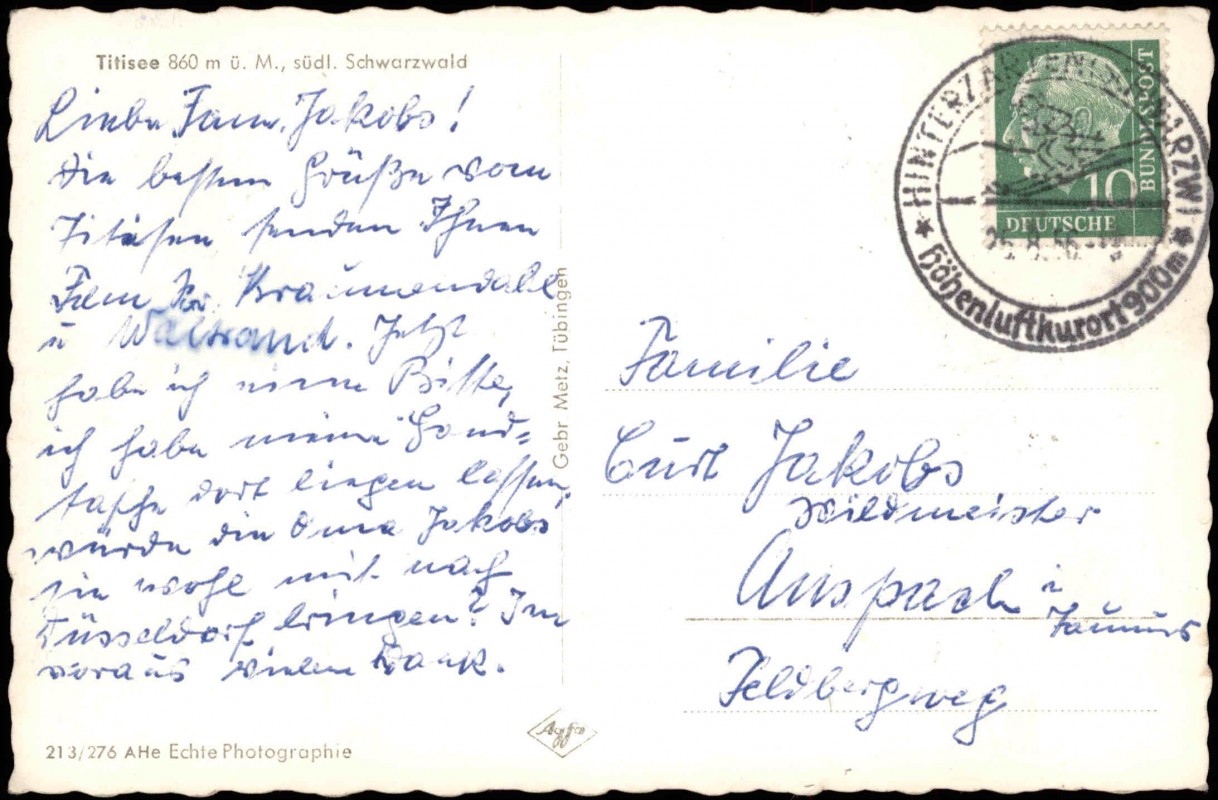 Titisee 860 m ü. M., südl. Schwarzwald
Liebe Fam. Jakobs!
Die besten Grüße vom
Titisee senden Ihnen
Fam Braumendahl
u Waltraud. Jetzt
habe ich eine Bitte,
ich habe meine Hand=
tasche dort liegen lassen,
würde die Oma Jakobs
sie wohl mit nach
Düsseldorf bringen? Im
voraus vielen Dank.
213/276 AHe Echte Photographie
Gebr Metz, Tübingen
Agfa
HINTERZARTEN (SCHWARZW)
Höhenluftkurort 900m
8.56
10
DEUTSCHE
BUNDESPOST
Familie
Curt Jakobs
Wildmeister
Anspach i
Taunus
Feldbergweg